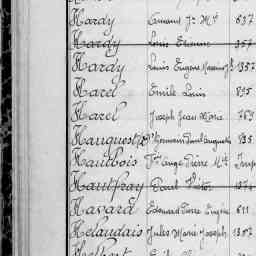 Hardy Armand Jn Mie 837
Hardy Louis Etienne 357
Hardy Louis Eugène 1357
Harel Emile Louis 895
Harel Joseph Jean Marie 763
Germain Paul Auguste 935
Hautbois Ange Pierre Mie
Hautfray Paul Victor 1374
Havard Edouard Pierre Eugène 811
Helaudais Jules Marie Joseph 1307